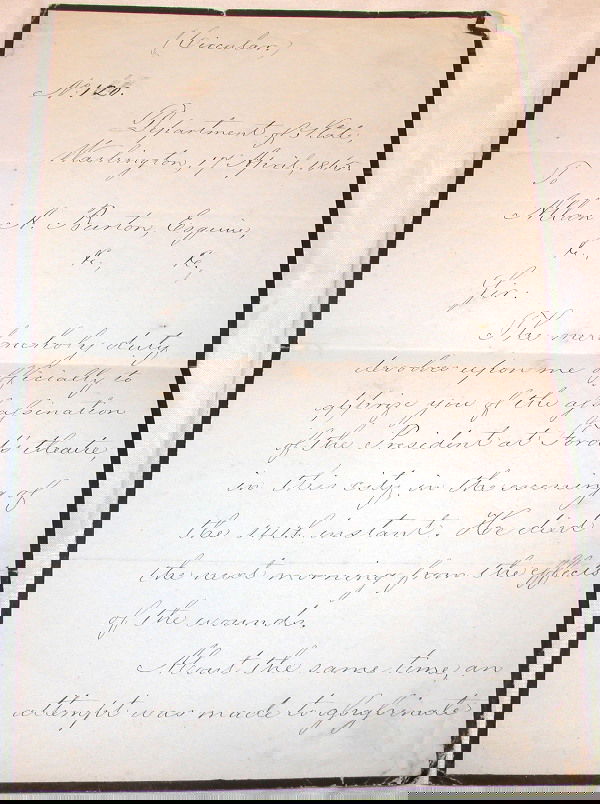 (Circular,)
No. 20.
Department of State,
Washington, 17th April, 1865
To
A. Burton, Esquire,
&c, &c, &c.
Sir.
The melancholy duty
devolves upon me officially to
apprize you of the assassination
of the President at Ford's theatre,
in this city, in the evening of
the 14th instant. He died
the next morning from the effects
of the wound.
About the same time, an
attempt was made to assassinate